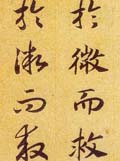 於微而救
於漸而救